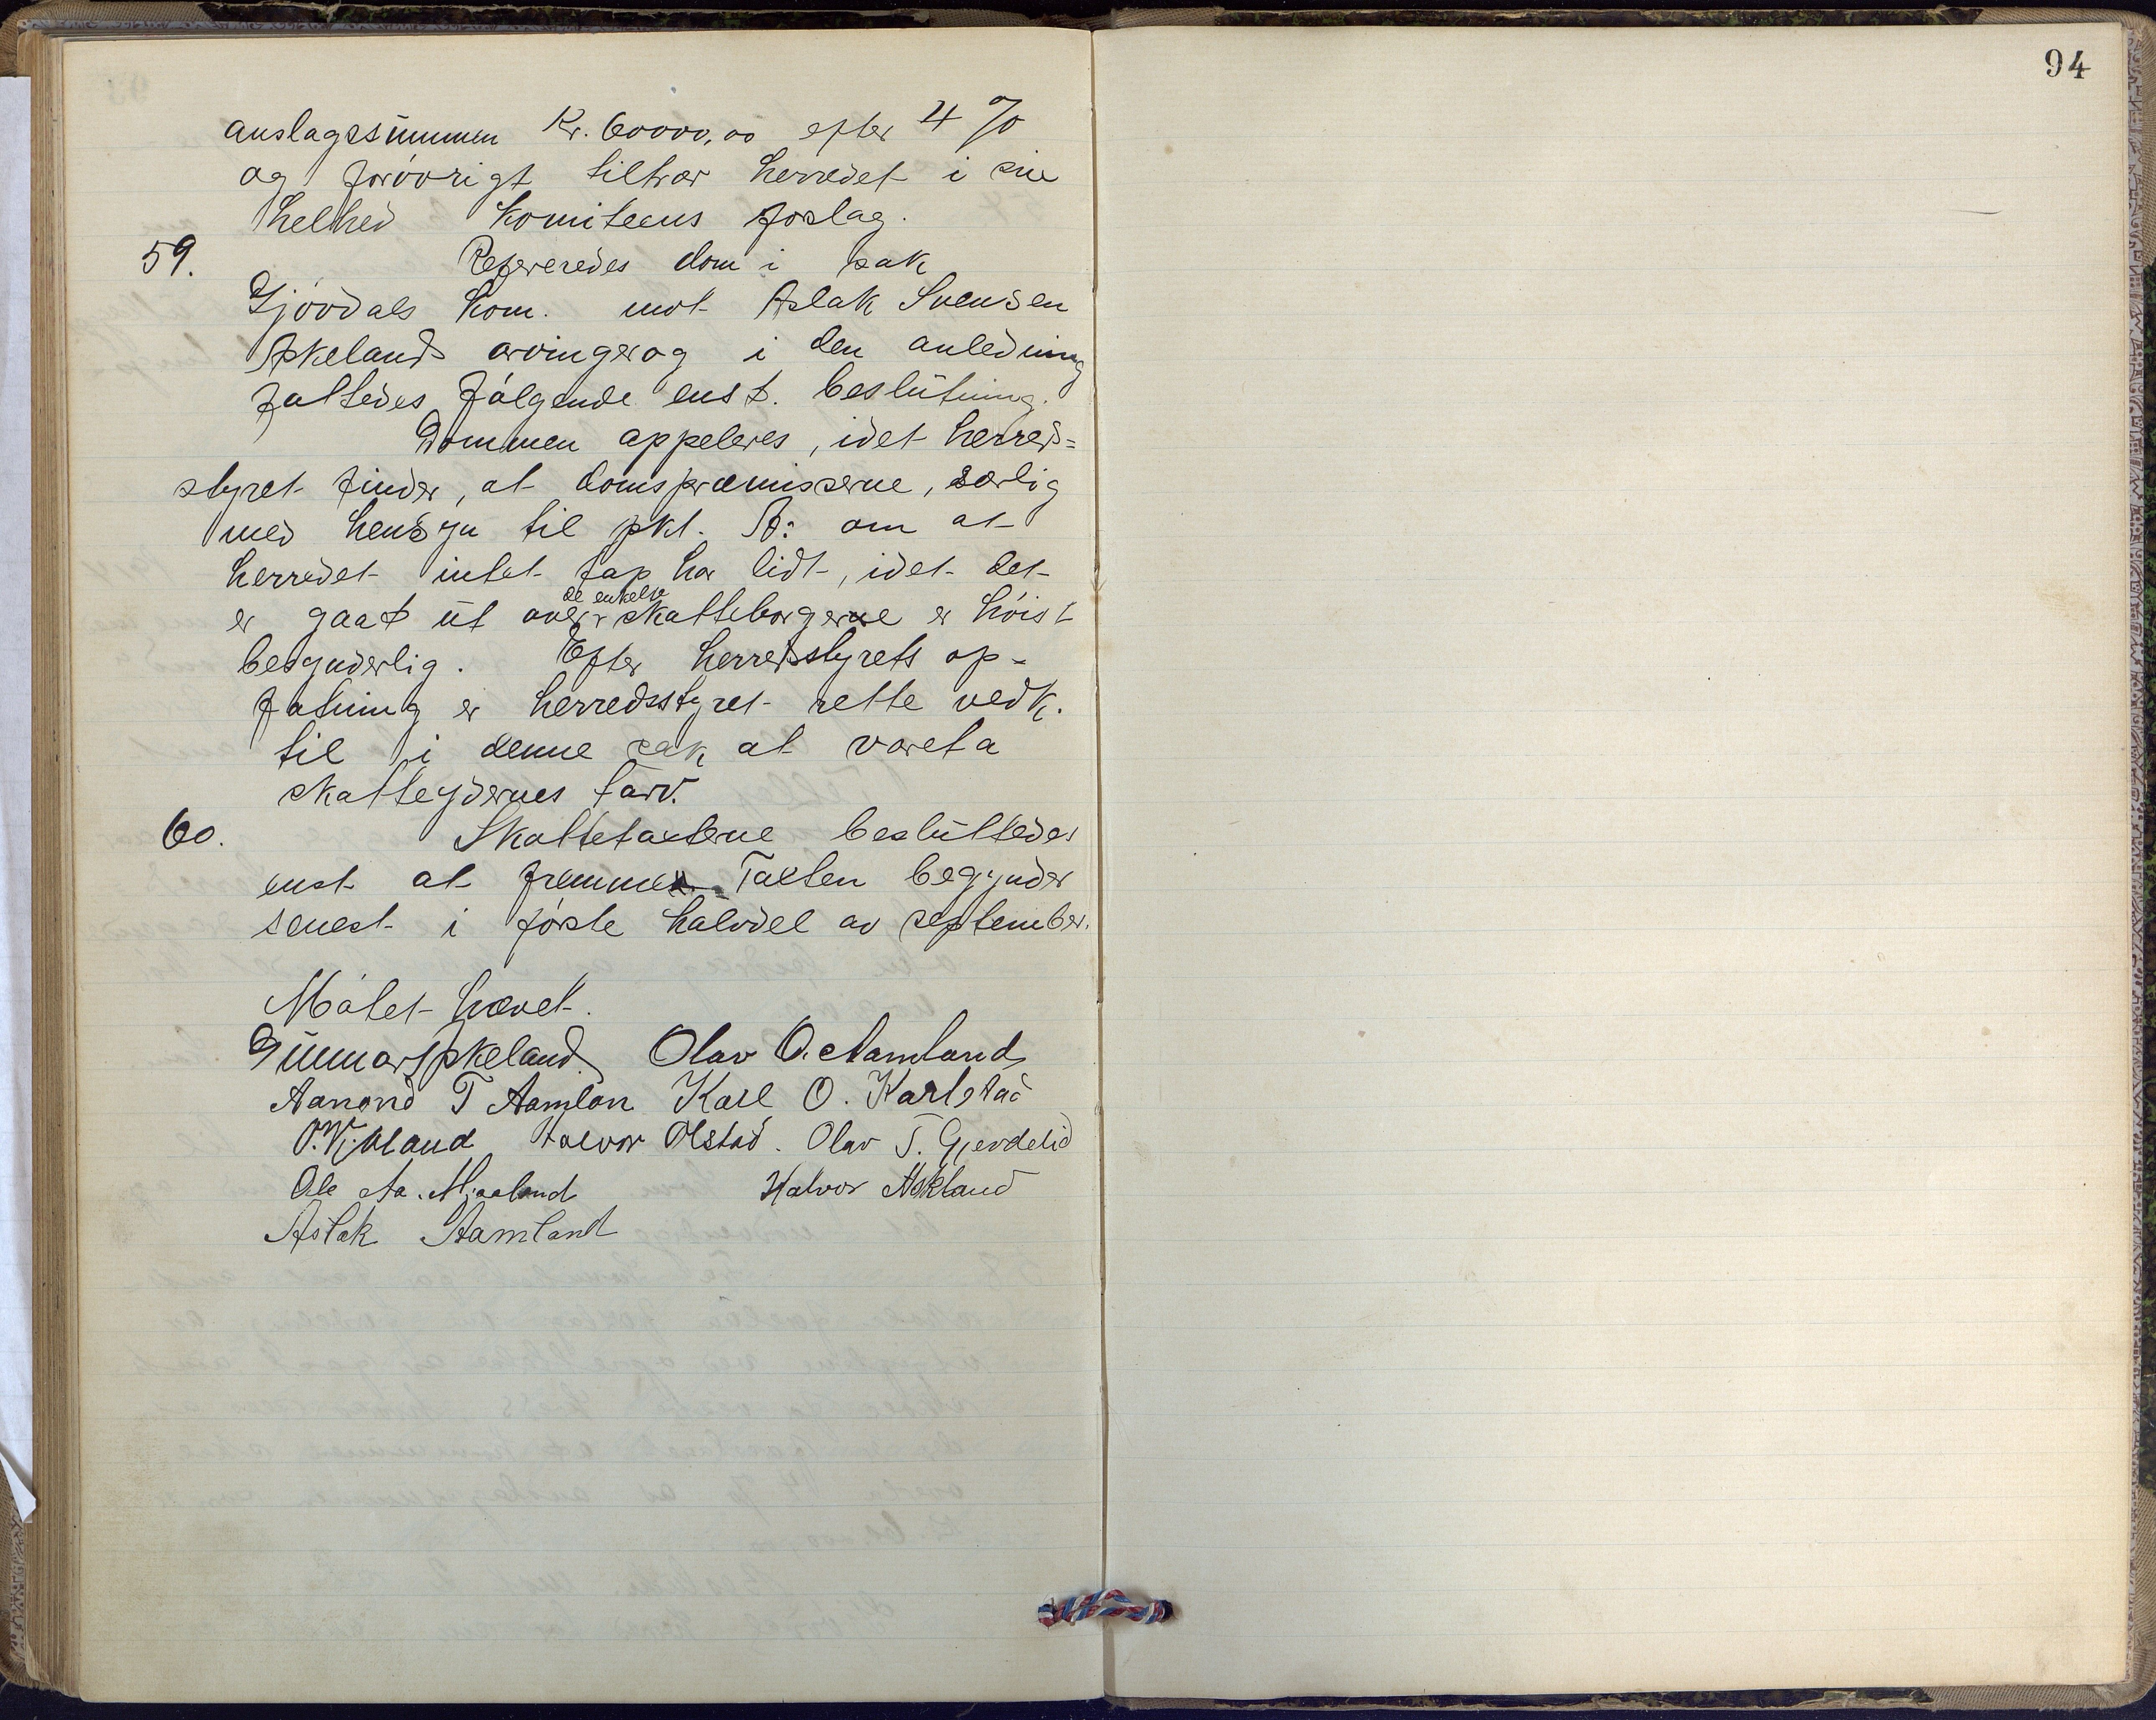 94
anslagssummen Kr. 60000,00 efter 4 %
og forövrigt tiltrær herredet i sin
helhed komiteens forslag.
59. Refereredes dom i sak
Gjövdals kom. mot Aslak Svensen
Askelands arvinger og i den anledning
fattedes fölgende enst. beslutning.
Dommen appeleres, idet herreds=
styret finder, at domspræmisserne, særlig
med hensyn til pkt. A: om at
herredet intet tap har lidt, idet det
de enkelte
er gaat ut over skatteborgerne er höist
besynderlig. Efter herredsstyrets op-
fatning er herredsstyret rette vedk.
til i denne sak at vareta
skatteydernes tarv.
60. Skattetaxterne besluttedes
enst at fremme. Taxten begynder
senest i förste halvdel av september.
Mötet hævet.
Gunnar Askeland. Olav O. Aamland
Aanond T Aamlan Karl O. Karlstad
O. Vihland Halvor Ölstad. Olav T. Gjevdelid
Ole Aa. Mjaaland Halvor Askland
Aslak Aamland